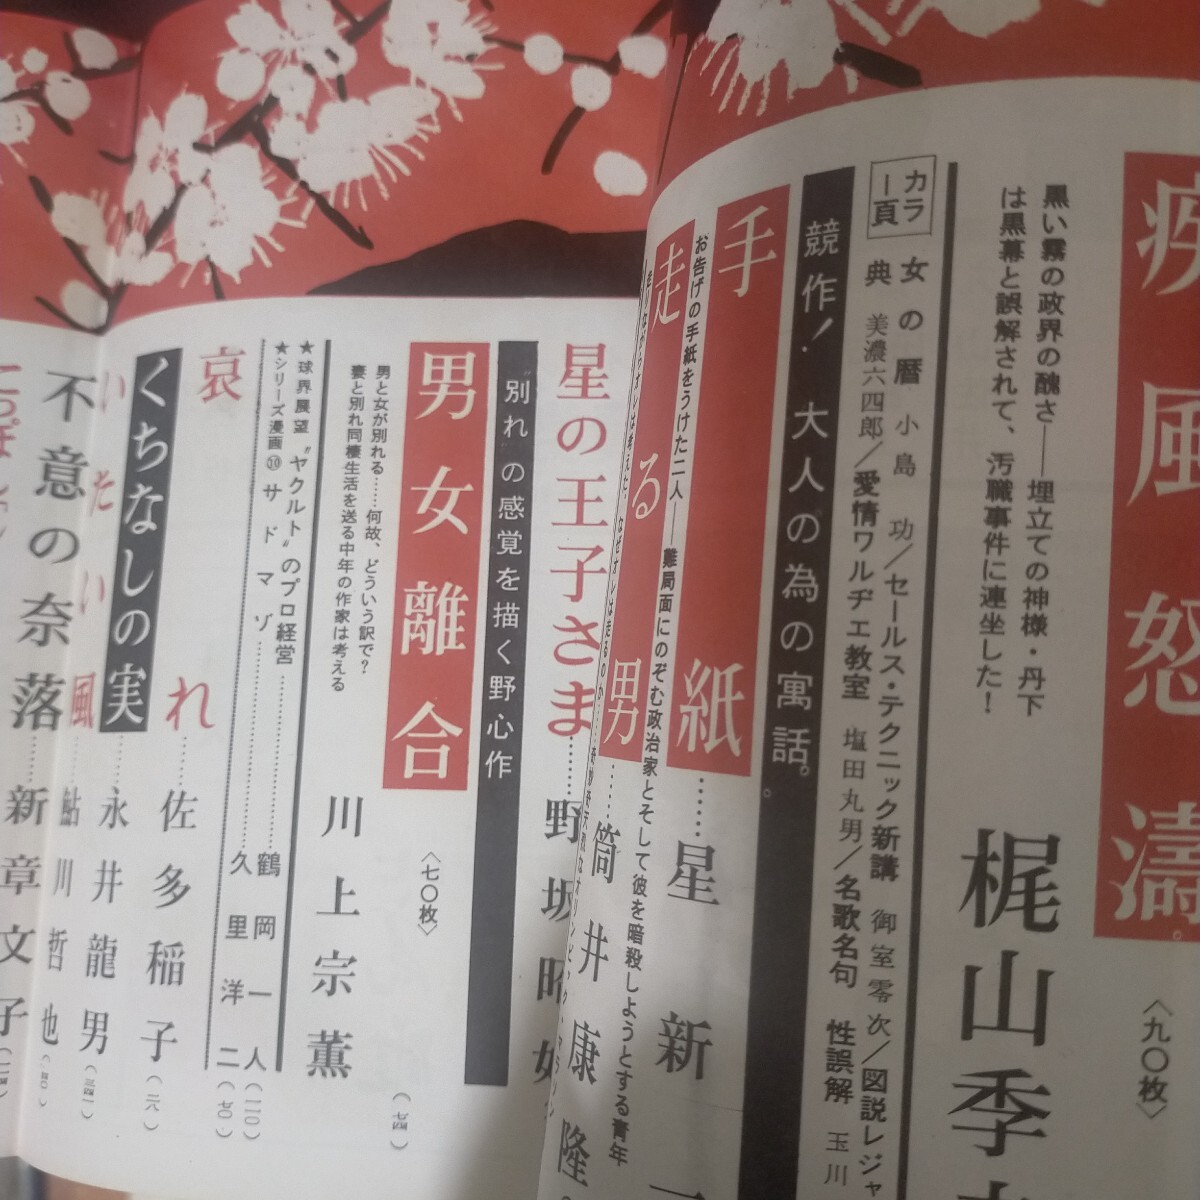 疾風怒濤。
〈九〇枚〉
梶山季
黒い霧の政界の醜さ――埋立ての神様・丹下
は黒幕と誤解されて、汚職事件に連坐した!
カラー頁
女の暦 小島 功/セールス・テクニック新講 御室零次/図説レジャ
典 美濃六四郎/愛情ワルヂエ教室 塩田丸男/名歌名句 性誤解 玉川
競作!大人の為の寓話。
手紙……星新一
お告げの手紙をうけた二人――難局面にのぞむ政治家とそして彼を暗殺しようとする青年
走る男……筒井康隆
走りながらオレは考えた、なぜオレは走るのか……
星の王子さま……野坂昭如
"別れ"の感覚を描く野心作
男女離合
〈七〇枚〉
川上宗薫
男と女が別れる……何故、どういう訳で?
妻と別れ同棲生活を送る中年の作家は考える
★球界展望"ヤクルト"のプロ経営……鶴岡一人(一一〇)
★シリーズ漫画⑩サドマゾ……久里洋二(七〇)
哀れ……佐多稲子(二八)
くちなしの実……永井龍男
いたい風……鮎川哲也
不意の奈落……新章文子